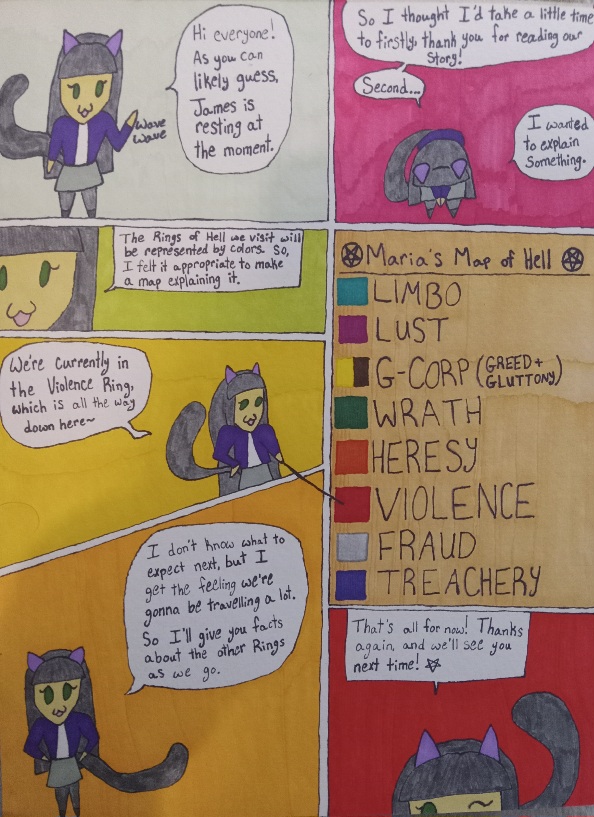 Hi everyone!
As you can
likely guess,
James is
resting at
the moment.
wave
wave
So I thought I'd take a little time
to firstly, thank you for reading our
Story!
Second...
I wanted
to explain
something.
The Rings of Hell we visit will
be represented by colors. So,
I felt it appropriate to make
a map explaining it.
Maria's Map of Hell
LIMBO
LUST
G-CORP (GREED +
GLUTTONY)
WRATH
HERESY
VIOLENCE
FRAUD
TREACHERY
We're currently in
the Violence Ring,
which is all the way
down here~
I don't know what to
expect next, but I
get the feeling we're
gonna be travelling a lot.
So I'll give you facts
about the other Rings
as we go.
That's all for now! Thanks
again, and we'll see you
next time!